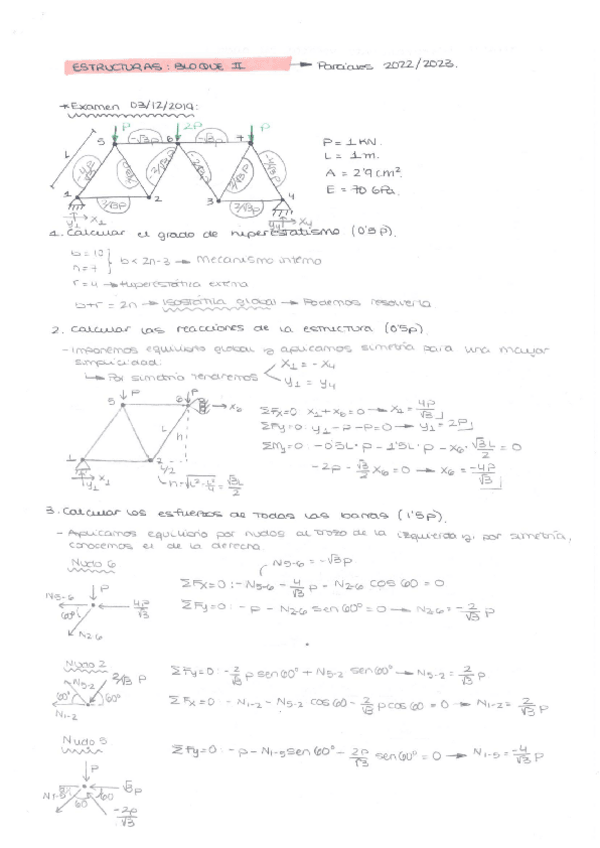 ESTRUCTURAS: BLOQUE II → Parciales 2022/2023.
*Examen 03/12/2019:
P 2P P
5 -√3P 6 -√3P 7
P = 1 KN.
L = 1 m.
A = 2'9 cm².
E = 70 GPa.
L
1 2/√3P 2 3 2/√3P 4
Y1 X1 Y4 X4
1. Calcular el grado de hiperestatismo (0'5p).
b = 10
n = 7
b < 2n-3 → Mecanismo interno
r = 4 → Hiperestática externa
b+r = 2n → Isostática global → Podemos resolverla
2. Calcular las reacciones de la estructura (0'5p).
- Imponemos equilibrio global y aplicamos simetría para una mayor
simplicidad:
↳ Por simetría tendremos
X1 = -X4
Y1 = Y4
5 P 6 P X6
L h
1 2 L/2
Y1 X1
h = √(L²-L²/4) = √3L/2
ΣFx=0: X1+X6=0 → X1 = 4P/√3
ΣFy=0: Y1-P-P=0 → Y1 = 2P
ΣM1=0: -0'5L·P - 1'5L·P - X6·√3L/2 = 0
-2P - √3/2 X6 = 0 → X6 = -4P/√3
3. Calcular los esfuerzos de todas las barras (1'5p).
- Aplicamos equilibrio por nudos al trozo de la izquierda y, por simetría,
conocemos el de la derecha.
Nudo 6
N5-6 = -√3P
P
N5-6 4P/√3
60°
N2-6
ΣFx=0: -N5-6 - 4/√3 P - N2-6 cos 60 = 0
ΣFy=0: -P - N2-6 sen 60° = 0 → N2-6 = -2/√3 P
Nudo 2
N5-2 2/√3 P
60° 60°
N1-2
ΣFy=0: -2/√3 P sen60° + N5-2 sen60° → N5-2 = 2/√3 P
ΣFx=0: -N1-2 - N5-2 cos60 - 2/√3 P cos60 = 0 → N1-2 = 2/√3 P
Nudo 5
P
√3P
N1-5 60 60
-2P/√3
ΣFy=0: -P - N1-5 sen 60° - 2P/√3 sen60° = 0 → N1-5 = -4/√3 P